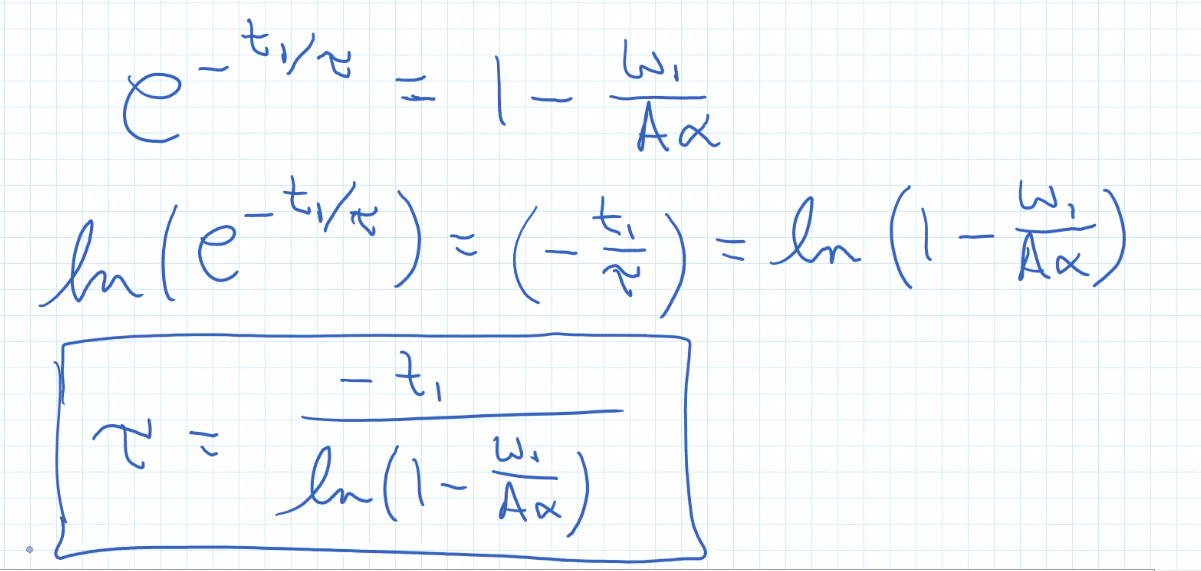 e^{-t₁/τ} = 1 - ω₁/(Aα)
ln(e^{-t₁/τ}) = (-t₁/τ) = ln(1 - ω₁/(Aα))
τ = -t₁/ln(1 - ω₁/(Aα))